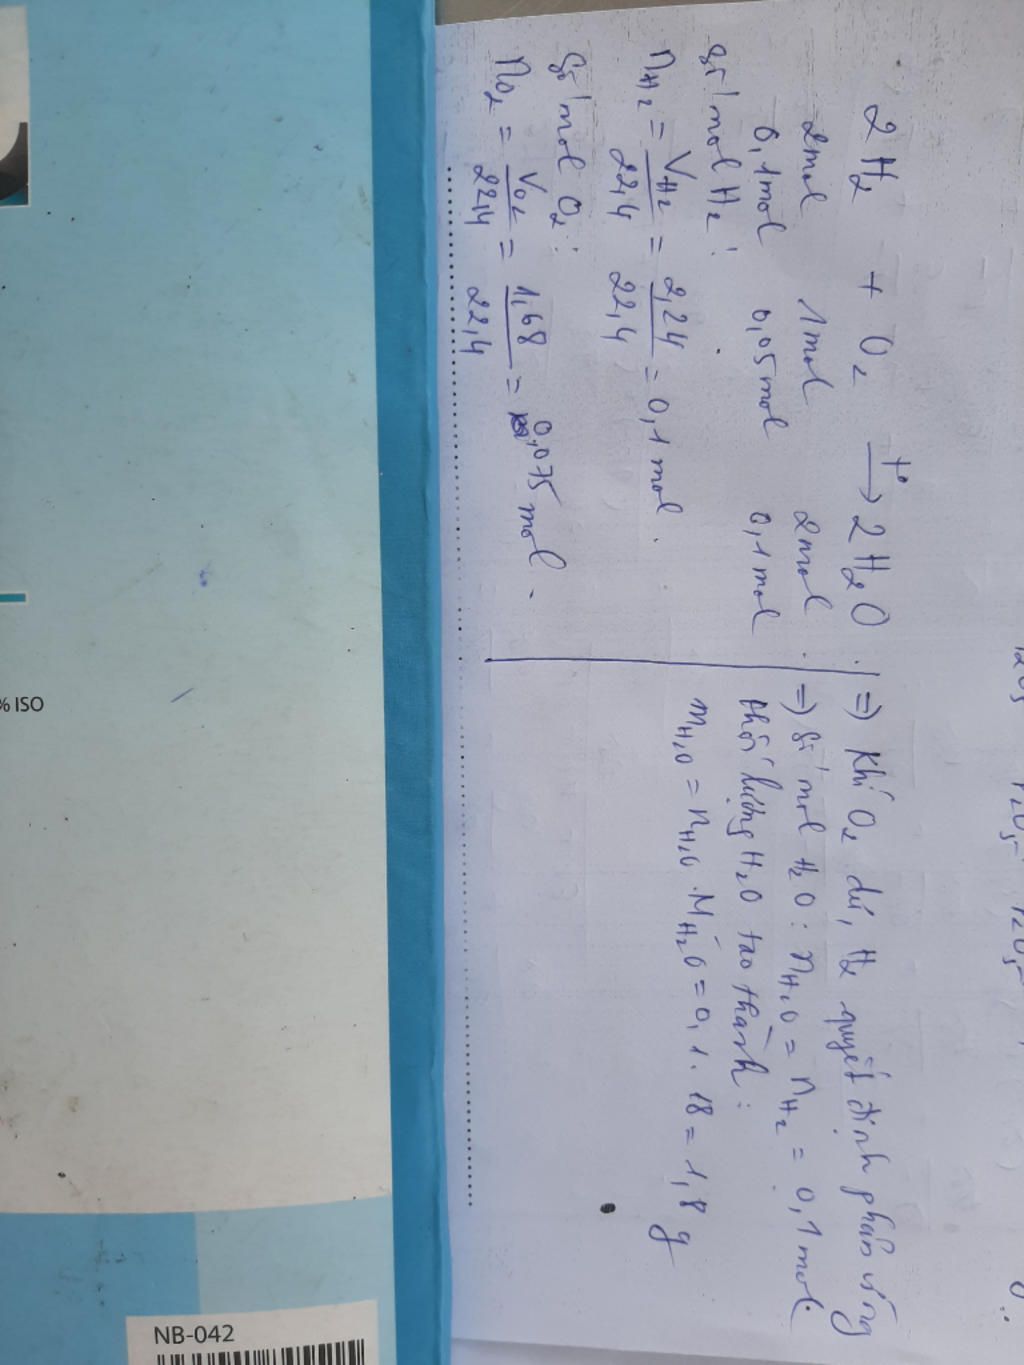 2H₂ + O₂ —t°→ 2H₂O.
2mol 1mol 2mol
0,1mol 0,05mol 0,1mol
Số mol H₂:
nH₂ = VH₂/22,4 = 2,24/22,4 = 0,1 mol.
Số mol O₂:
nO₂ = VO₂/22,4 = 1,68/22,4 = 0,075 mol.
=) Khí O₂ dư, H₂ quyết định phản ứng
=) Số mol H₂O: nH₂O = nH₂ = 0,1 mol.
khối lượng H₂O tạo thành:
mH₂O = nH₂O . MH₂O = 0,1 . 18 = 1,8 g
% ISO
NB-042